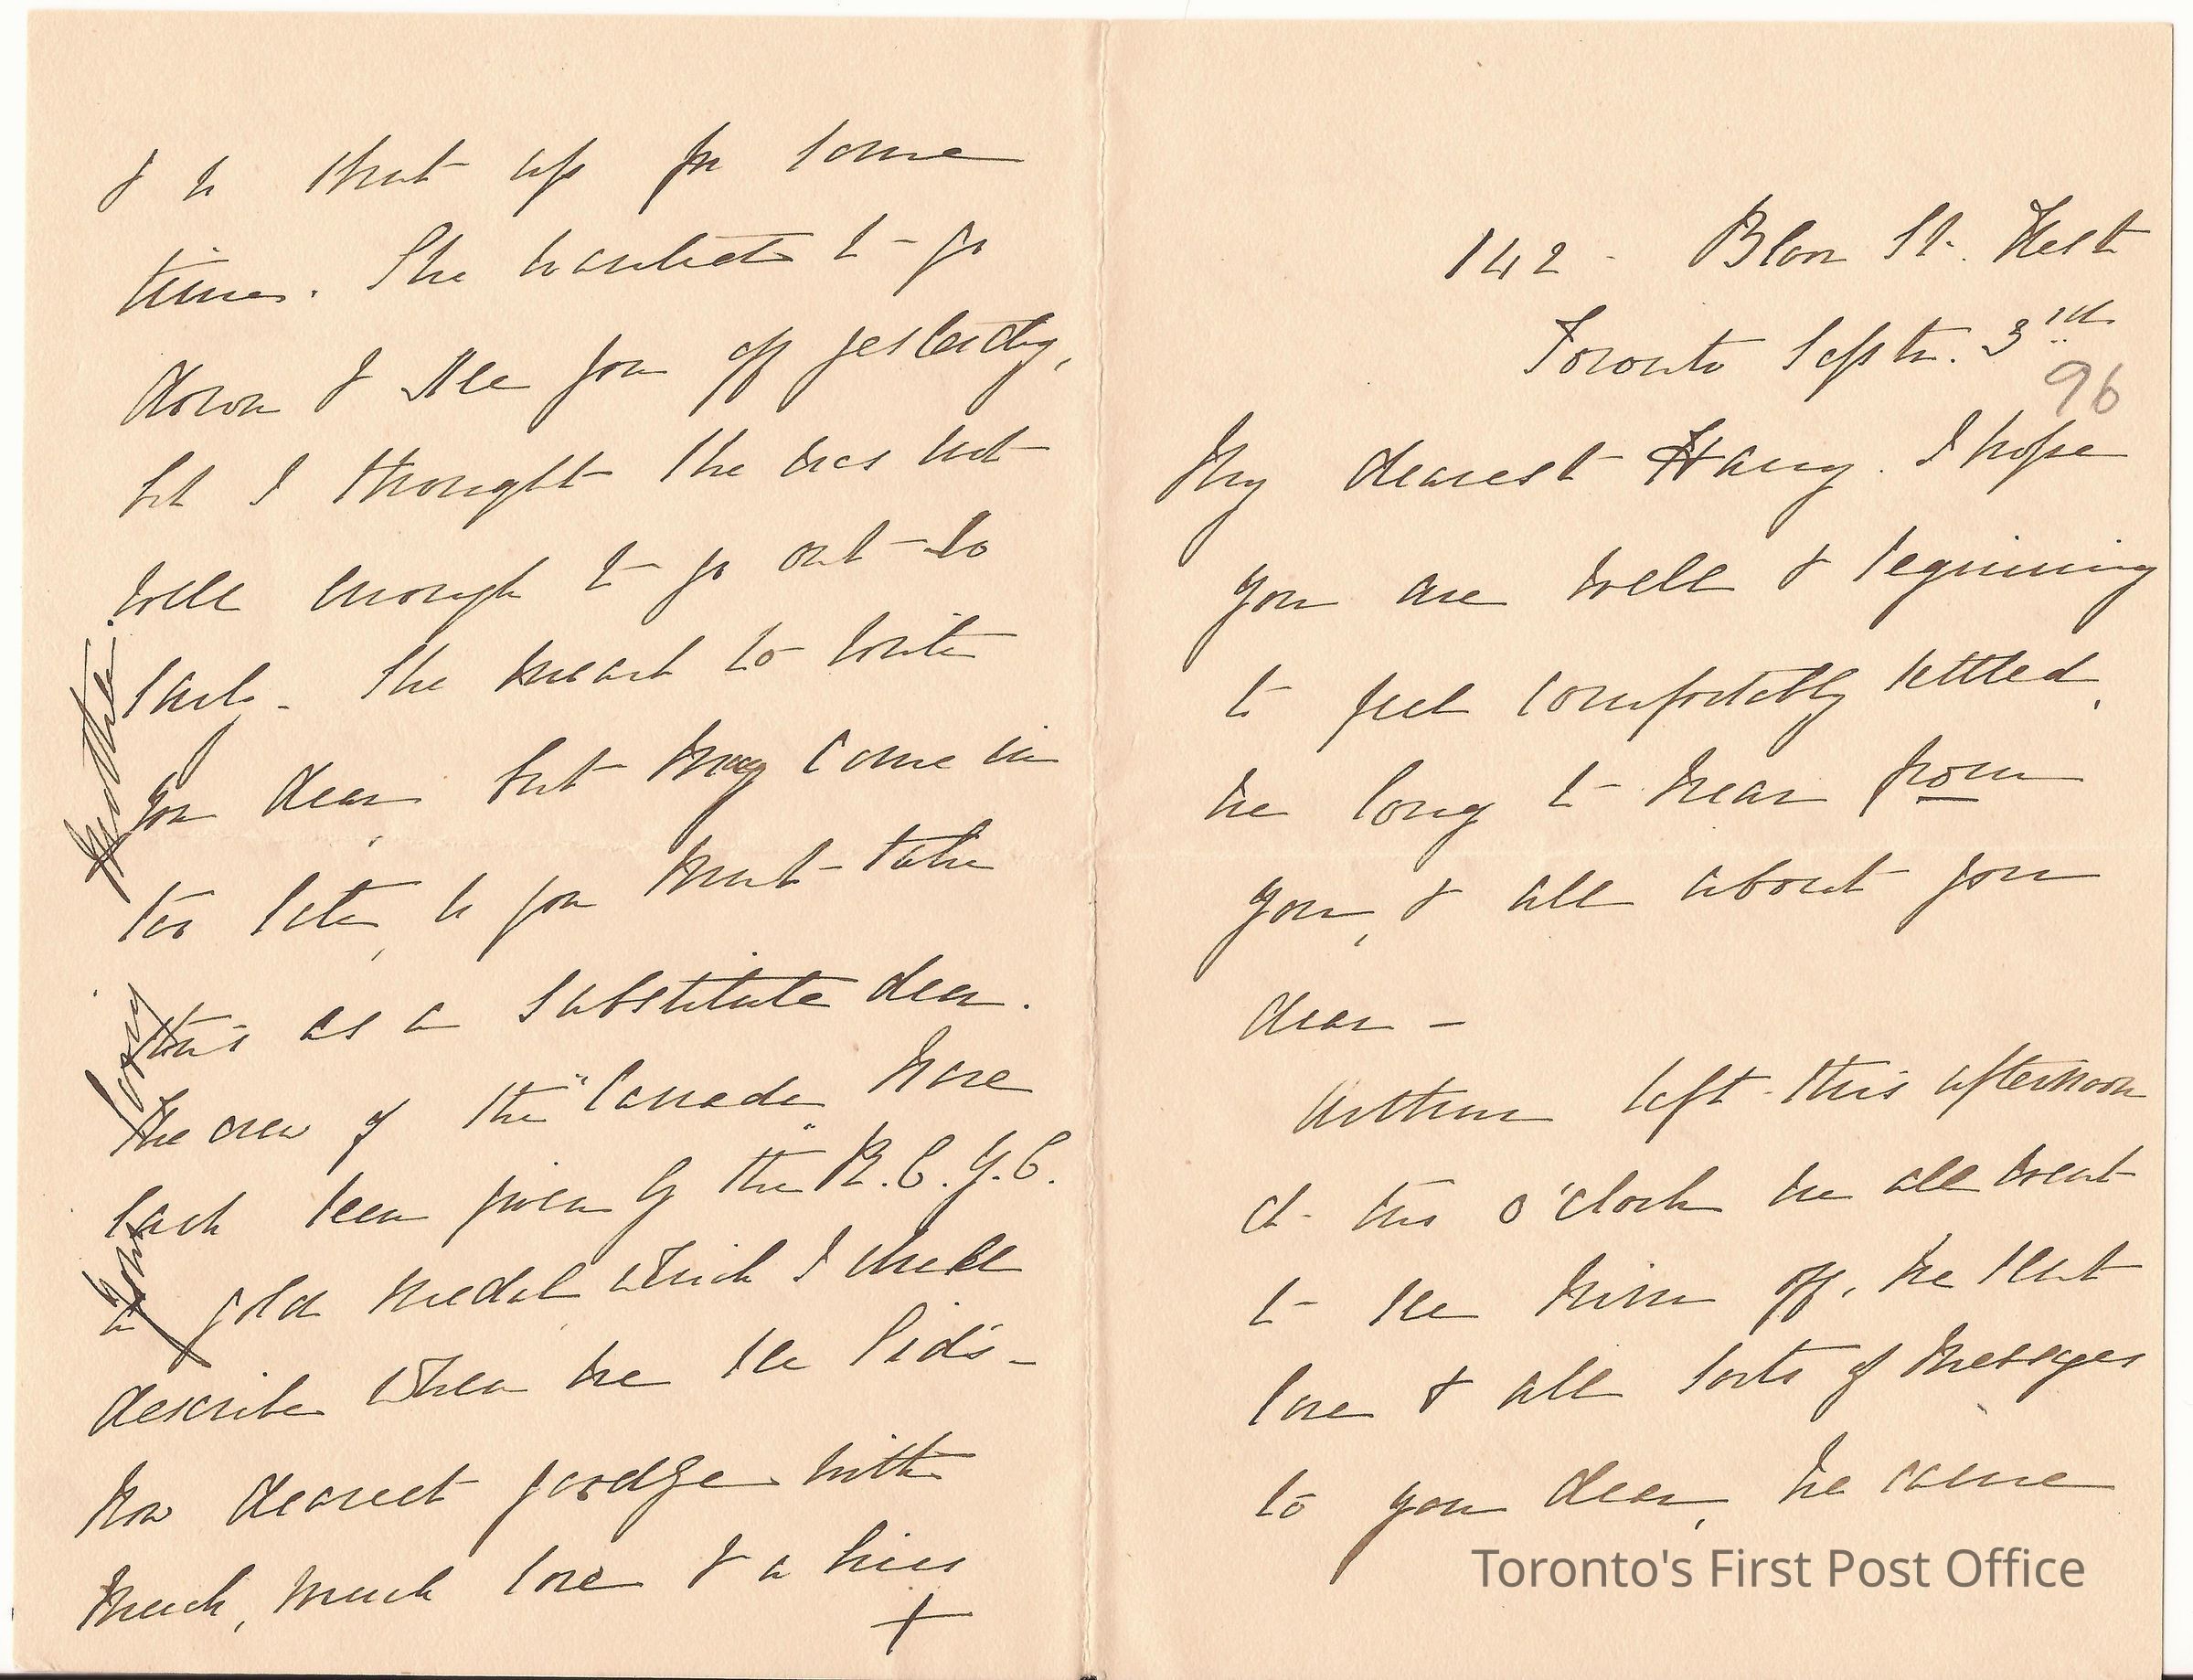 142 - Bloor St. West
Toronto Septr. 3rd
96
My dearest Harry. I hope
you are well & beginning
to feel comfortably settled,
we long to hear from
you, & all about you
dear -
Arthur left this afternoon
at two o'clock we all went
to see him off, he sent
love & all sorts of messages
to you dear, he came
& is shut up for some
time. She wanted to go
down & see you off yesterday,
but I thought she was not
well enough to go out so
early - She meant to write
you dear, but may come in
too late, so you must take
this as a substitute dear.
The crew of the "Canada" have
each been given by the R.C.Y.C.
a gold medal which I shall
describe when we see Sid's -
Now dearest goodbye with
much, much love & a kiss
+
Your
loving
Mother.
Toronto's First Post Office